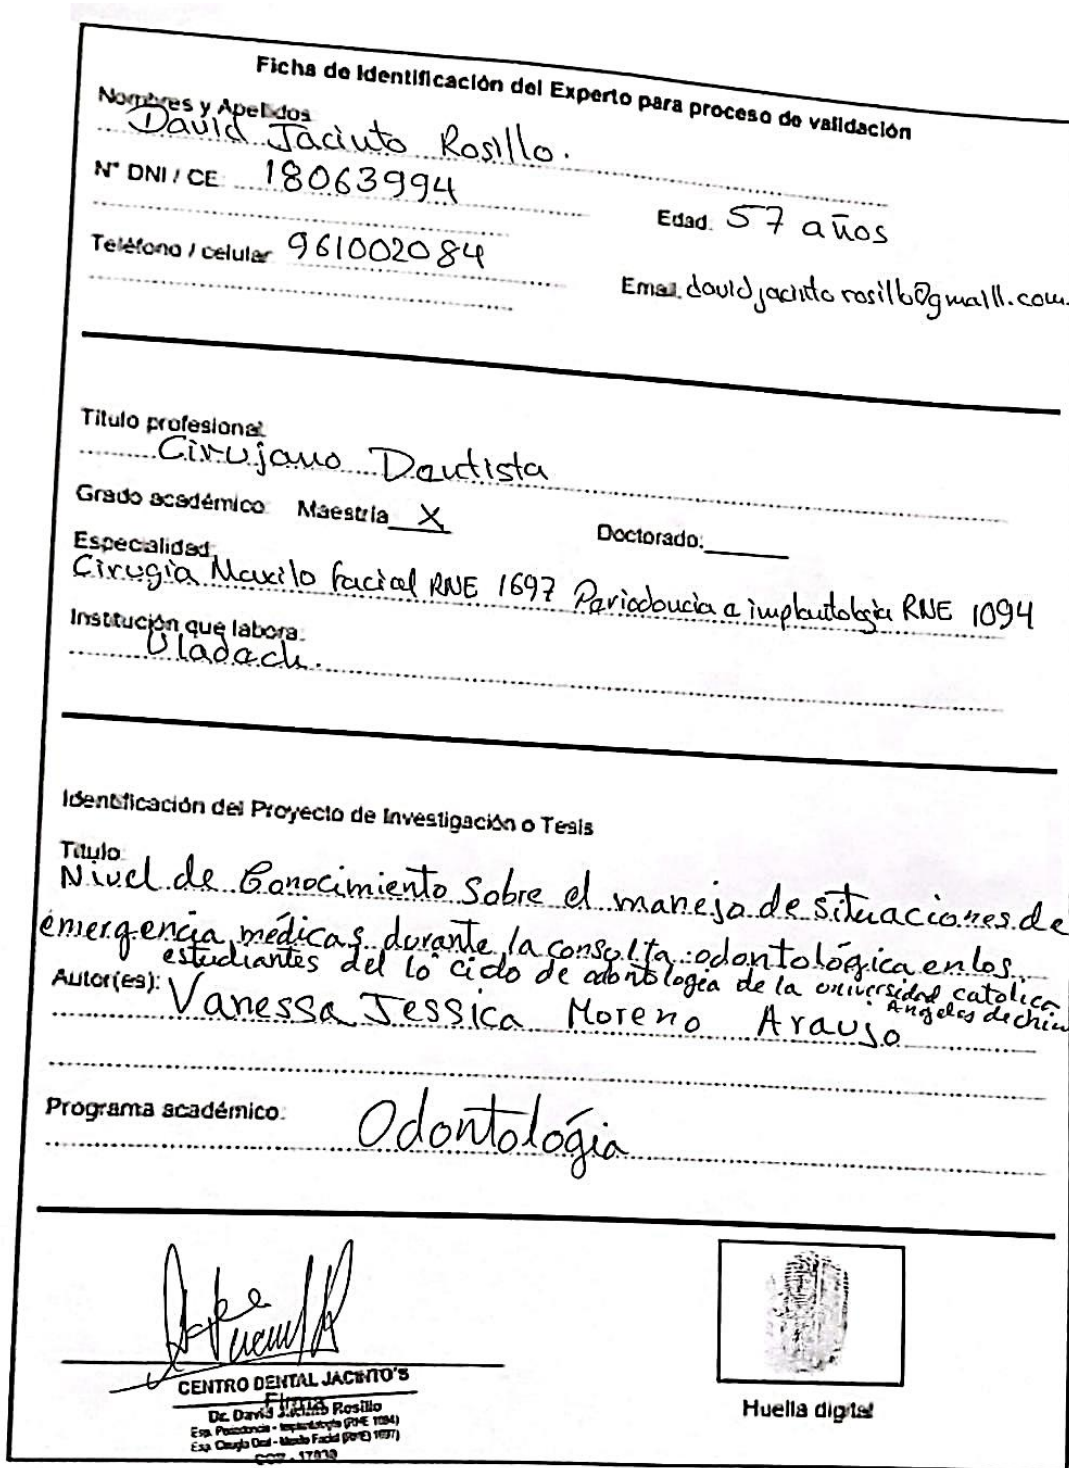 Ficha de Identificación del Experto para proceso de validación
Nombres y Apellidos
David Jacinto Rosillo.
N° DNI / CE: 18063994
Edad. 57 años
Teléfono / celular 961002084
Email: davidjacintorosillo@gmail.com.
Título profesional:
Cirujano Dentista
Grado académico: Maestría X Doctorado:
Especialidad:
Cirugía Maxilo facial RNE 1697 Periodoncia e implantología RNE 1094
Institución que labora:
Uladech.
Identificación del Proyecto de Investigación o Tesis
Título:
Nivel de Conocimiento Sobre el manejo de situaciones de
emergencia médicas durante la consulta odontológica en los
estudiantes del 10 ciclo de odontología de la universidad catolica
Angeles de chim
Autor(es): Vanessa Jessica Moreno Araujo
Programa académico: Odontológia
CENTRO DENTAL JACINTO'S
Firma
Dr. David Jacinto Rosillo
Esp. Periodoncia - Implantología (RNE 1094)
Esp. Cirugía Oral - Maxilo Facial (RNE) 1697)
Huella digital